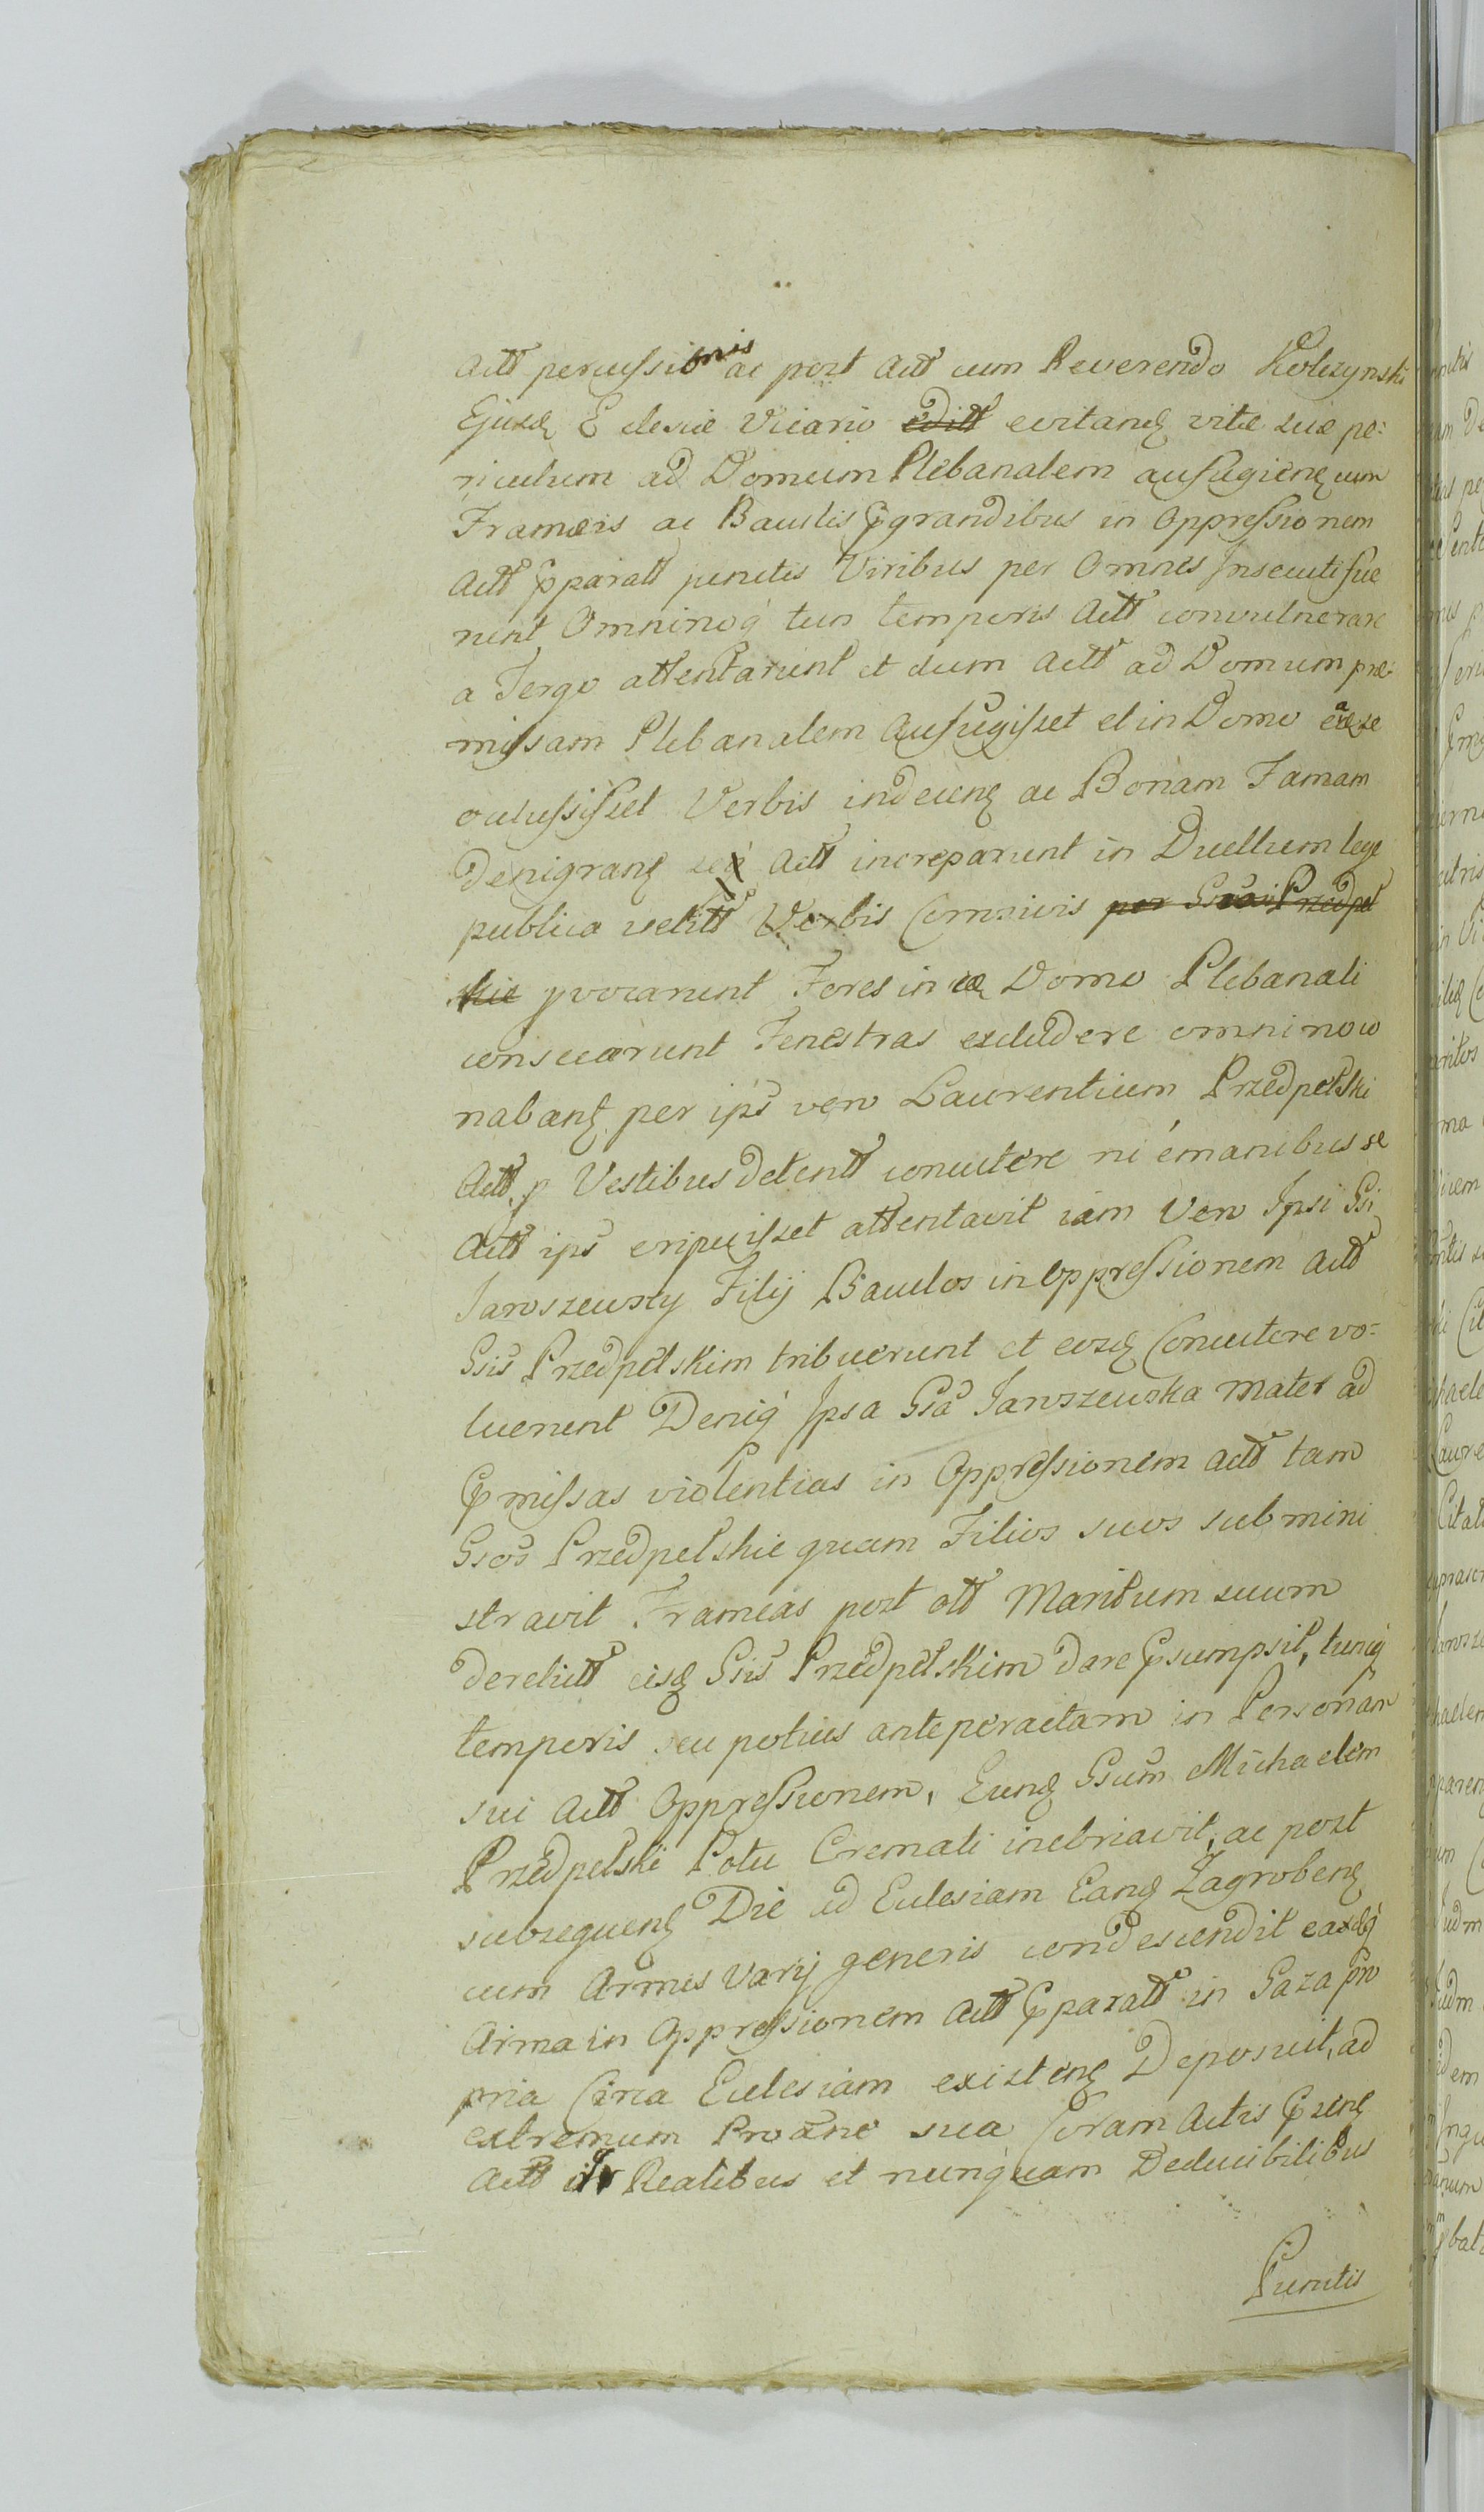 Actt percussionis ac post Actt cum Reverendo Kolczynski
Ejusdq Eclesiæ Vicario editt evitandq vitæ suæ pe:
riculum ad Domum Plebanalem aufugienq cum
Frameis ac Baculis Pgrandibus in Oppressionem
Actt pparatt junctis Viribus per Omnes Insecuti fue
runt Omninoq tun temporis Actt convulnerare
a Tergo attentarunt et dum Actt ad Domum præ:
missam Plebanalem Aufugisset et in Domo ea se
oclusisset Verbis indecenq ac Bonam Famam
Denigranq Actt increparunt in Duellum lege
publica vetitt Verbis Comnivis per Gsos Przedpel
skie pvocarunt Fores in ea Domo Plebanali
consecarunt Fenestras excludere omnino co
nabanq per ips vero Laurentium Przedpelski
Actt p Vestibus detentt concutere ni é manibus se
Actt ips eripuisset attentavit iam Vero Ipsi Gsi
Jaroszewscy Filij Baculos in Oppressionem Actt
Gsis Przedpelskim tribuerunt et eosdq Concutere vo:
luerunt Deniq Ipsa Gsa Jaroszewska Mater ad
Pmissas violentias in Oppressionem Actt tam
Gsos Przedpelskie quam Filios suos submini
stravit Frameas post ott Maritum suum
derelictt eisdq Gsis Przedpelskim Dare Psumpsit, tuncq
temporis seu potius ante peractam in Personam
sui Actt Oppressionem, Eundq Gsum Michaelem
Przedpelski Potu Cremati inebriavit, ac post
subsequenq Die ad Eclesiam Eandq Zagrobenq
cum Armis Varij generis condescendit eaxdq
Arma in Oppressionem Actt Pparatt in Gaza Pro
pria Circa Eclesiam existenq Deposuit, ad
extremum Proæne sua Coram Actis Psenq
Actt Realibus et nunquam Deducibilibus
Punctis